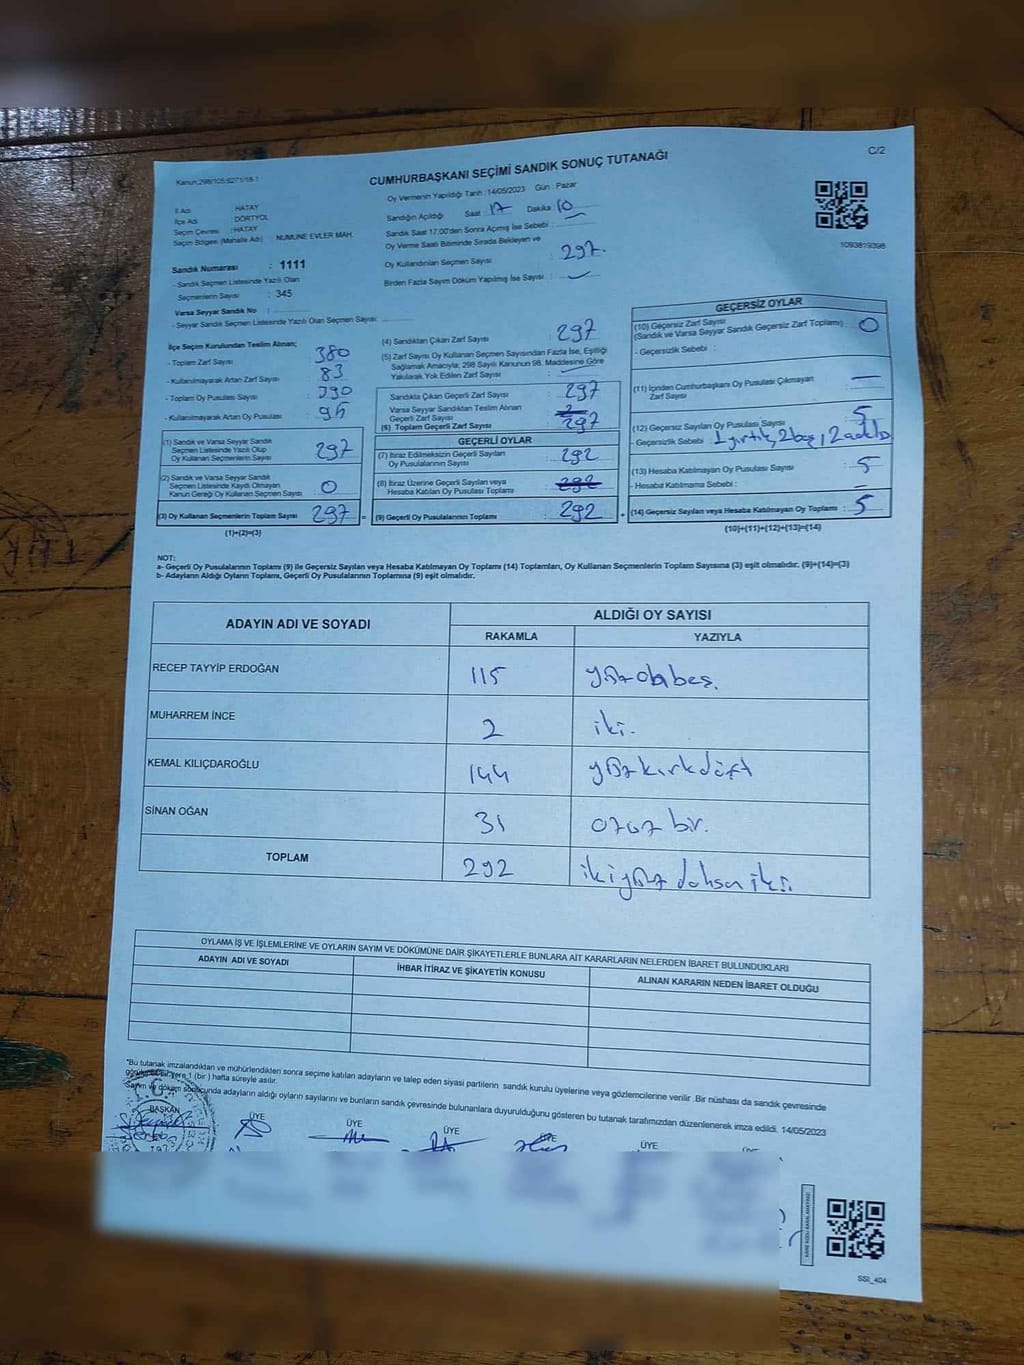 Kanun:298/105,6271/18-1
CUMHURBAŞKANI SEÇİMİ SANDIK SONUÇ TUTANAĞI
C/2
İl Adı : HATAY
İlçe Adı : DÖRTYOL
Seçim Çevresi : HATAY
Seçim Bölgesi (Mahalle Adı) : NUMUNE EVLER MAH.
Oy Vermenin Yapıldığı Tarih :14/05/2023 Gün : Pazar
Sandığın Açıldığı Saat : 17 Dakika : 10
Sandık Saat 17.00'den Sonra Açılmış İse Sebebi :
Oy Verme Saati Bitiminde Sırada Bekleyen ve
Oy Kullandırılan Seçmen Sayısı : 297.
Birden Fazla Sayım Döküm Yapılmış İse Sayısı :
1093819398
Sandık Numarası : 1111
- Sandık Seçmen Listesinde Yazılı Olan
Seçmenlerin Sayısı : 345
Varsa Seyyar Sandık No :
- Seyyar Sandık Seçmen Listesinde Yazılı Olan Seçmen Sayısı:
İlçe Seçim Kurulundan Teslim Alınan;
- Toplam Zarf Sayısı : 380
- Kullanılmayarak Artan Zarf Sayısı : 83
- Toplam Oy Pusulası Sayısı :
- Kullanılmayarak Artan Oy Pusulası :
(1) Sandık ve Varsa Seyyar Sandık
Seçmen Listesinde Yazılı Olup
Oy Kullanan Seçmenlerin Sayısı : 297
(2) Sandık ve Varsa Seyyar Sandık
Seçmen Listesinde Kaydı Olmayan
Kanun Gereği Oy Kullanan Seçmen Sayısı : 0
(3) Oy Kullanan Seçmenlerin Toplam Sayısı : 297 =
(1)+(2)=(3)
(4) Sandıktan Çıkan Zarf Sayısı : 297
(5) Zarf Sayısı Oy Kullanan Seçmen Sayısından Fazla İse, Eşitliği
Sağlamak Amacıyla, 298 Sayılı Kanunun 98. Maddesine Göre
Yakılarak Yok Edilen Zarf Sayısı :
Sandıkta Çıkan Geçerli Zarf Sayısı : 297
Varsa Seyyar Sandıktan Teslim Alınan
Geçerli Zarf Sayısı :
(6) Toplam Geçerli Zarf Sayısı : 297
GEÇERLİ OYLAR
(7) İtiraz Edilmeksizin Geçerli Sayılan
Oy Pusulalarının Sayısı : 292
(8) İtiraz Üzerine Geçerli Sayılan veya
Hesaba Katılan Oy Pusulası Toplamı : 292
(9) Geçerli Oy Pusulalarının Toplamı : 292 +
GEÇERSİZ OYLAR
(10) Geçersiz Zarf Sayısı
(Sandık ve Varsa Seyyar Sandık Geçersiz Zarf Toplamı) : 0
- Geçersizlik Sebebi :
(11) İçinden Cumhurbaşkanı Oy Pusulası Çıkmayan
Zarf Sayısı : —
(12) Geçersiz Sayılan Oy Pusulası Sayısı : 5
- Geçersizlik Sebebi : 1 yırtık, 2 boş, 2
(13) Hesaba Katılmayan Oy Pusulası Sayısı : 5
- Hesaba Katılmama Sebebi : —
(14) Geçersiz Sayılan veya Hesaba Katılmayan Oy Toplamı : 5
(10)+(11)+(12)+(13)=(14)
NOT:
a- Geçerli Oy Pusulalarının Toplamı (9) ile Geçersiz Sayılan veya Hesaba Katılmayan Oy Toplamı (14) Toplamları, Oy Kullanan Seçmenlerin Toplam Sayısına (3) eşit olmalıdır. (9)+(14)=(3)
b- Adayların Aldığı Oyların Toplamı, Geçerli Oy Pusulalarının Toplamına (9) eşit olmalıdır.
ADAYIN ADI VE SOYADI
ALDIĞI OY SAYISI
RAKAMLA YAZIYLA
RECEP TAYYİP ERDOĞAN 115 yüz on beş.
MUHARREM İNCE 2 iki.
KEMAL KILIÇDAROĞLU 144 yüz kırk dört
SİNAN OĞAN 31 otuz bir.
TOPLAM 292 iki yüz doksan iki
OYLAMA İŞ VE İŞLEMLERİNE VE OYLARIN SAYIM VE DÖKÜMÜNE DAİR ŞİKAYETLERLE BUNLARA AİT KARARLARIN NELERDEN İBARET BULUNDUKLARI
ADAYIN ADI VE SOYADI İHBAR İTİRAZ VE ŞİKAYETİN KONUSU ALINAN KARARIN NEDEN İBARET OLDUĞU
*Bu tutanak imzalandıktan ve mühürlendikten sonra seçime katılan adayların ve talep eden siyasi partilerin sandık kurulu üyelerine veya gözlemcilerine verilir .Bir nüshası da sandık çevresinde
bir yere 1 (bir ) hafta süreyle asılır.
Sayım ve döküm sonucunda adayların aldığı oyların sayılarını ve bunların sandık çevresinde bulunanlara duyurulduğunu gösteren bu tutanak tarafımızdan düzenlenerek imza edildi. 14/05/2023
BAŞKAN ÜYE ÜYE ÜYE ÜYE ÜYE
SSI_404